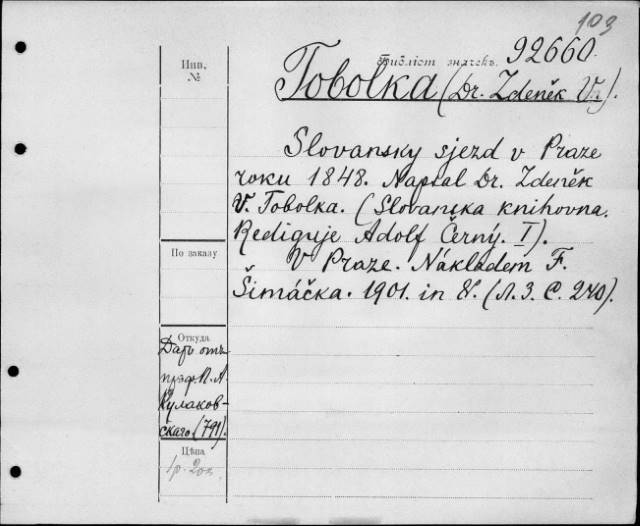 103
Инв.
№
Библіот. значекъ. 92660.
Tobolka (Dr. Zdeněk V.).
Slovansky sjezd v Praze
roku 1848. Napsal Dr. Zdeněk
V. Tobolka. (Slovanska knihovna.
Rediguje Adolf Černý. I).
V Praze. Nákladem F.
Šimáčka. 1901. in 8°. (Л. З. С. 240).
По заказу
Откуда
Даръ отъ
проф. П. А.
Кулаков-
скаго. (791).
Цѣна
1 р. 20 к.